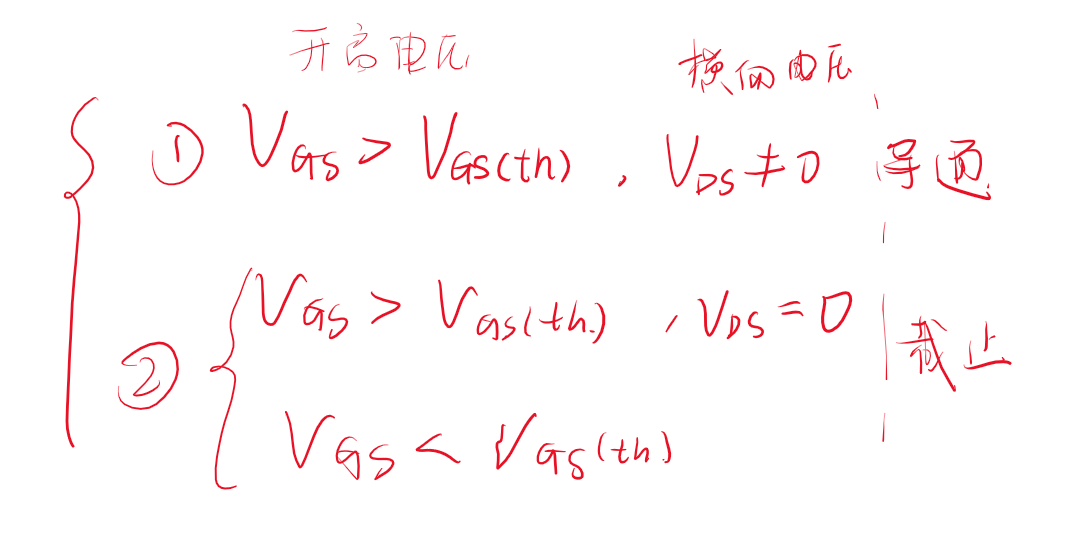 开启电压 横向电压
① V_GS > V_GS(th), V_DS ≠ 0 导通
② V_GS > V_GS(th.), V_DS = 0
截止
V_GS < V_GS(th.)